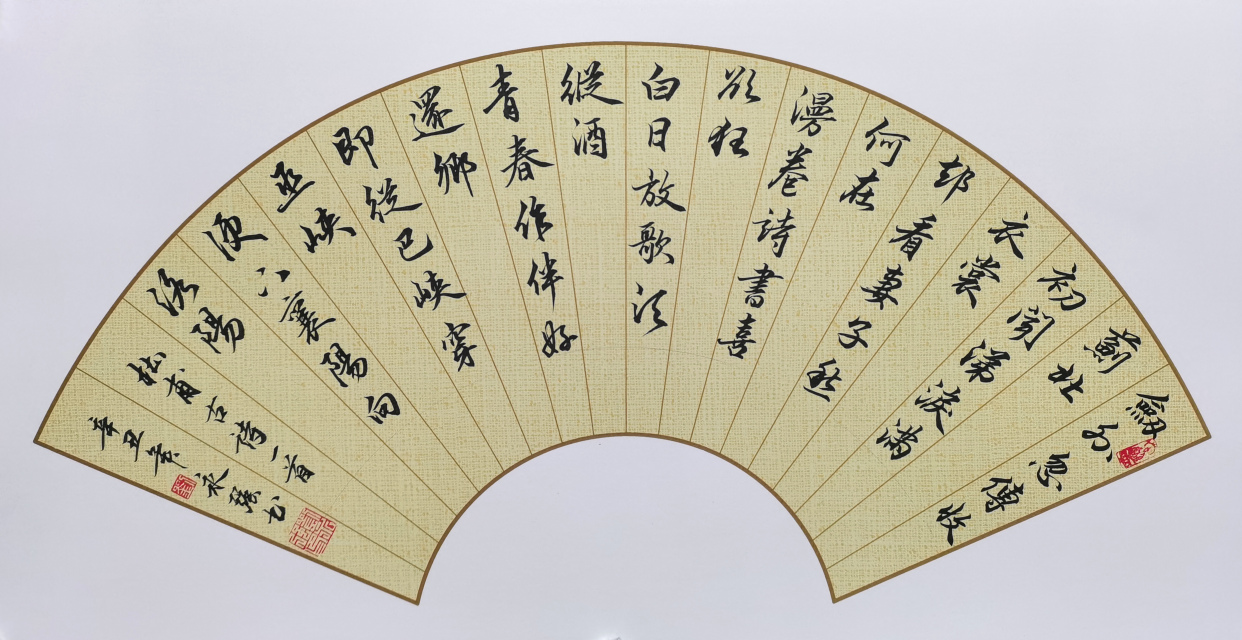 劔外忽傳收
薊北
初聞涕淚滿
衣裳
却看妻子愁
何在
漫卷詩書喜
欲狂
白日放歌須
縱酒
青春作伴好
還鄉
即從巴峽穿
巫峽
便下襄陽向
洛陽
杜甫古詩一首
辛丑年永书